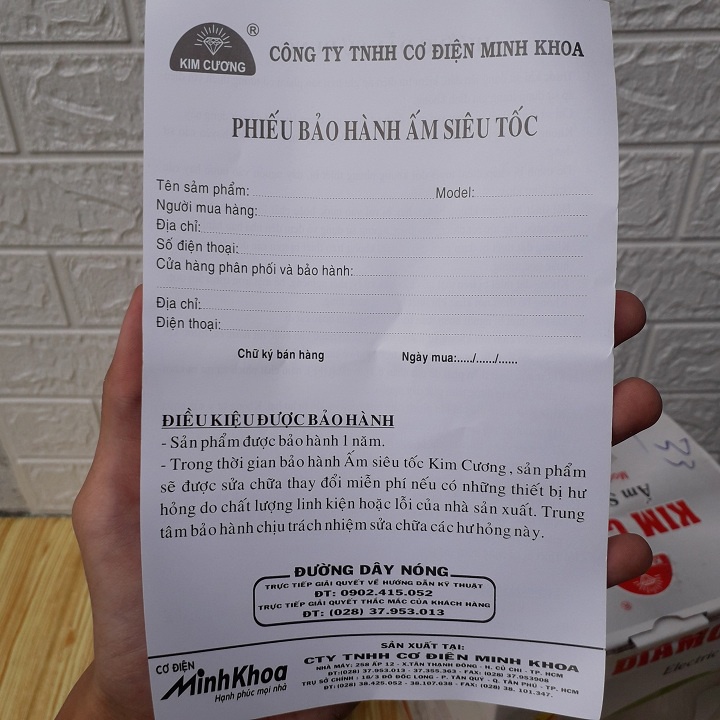 KIM CƯƠNG ®
CÔNG TY TNHH CƠ ĐIỆN MINH KHOA
PHIẾU BẢO HÀNH ẤM SIÊU TỐC
Tên sảm phẩm: Model:
Người mua hàng:
Địa chỉ:
Số điện thoại:
Cửa hàng phân phối và bảo hành:
Địa chỉ:
Điện thoại:
Chữ ký bán hàng Ngày mua:...../....../......
ĐIỀU KIỆU ĐƯỢC BẢO HÀNH
- Sản phẩm được bảo hành 1 năm.
- Trong thời gian bảo hành Ấm siêu tốc Kim Cương, sản phẩm
sẽ được sửa chữa thay đổi miễn phí nếu có những thiết bị hư
hỏng do chất lượng linh kiện hoặc lỗi của nhà sản xuất. Trung
tâm bảo hành chịu trách nhiệm sửa chữa các hư hỏng này.
ĐƯỜNG DÂY NÓNG
TRỰC TIẾP GIẢI QUYẾT VỀ HƯỚNG DẪN KỸ THUẬT
ĐT: 0902.415.052
TRỰC TIẾP GIẢI QUYẾT THẮC MẮC CỦA KHÁCH HÀNG
ĐT: (028) 37.953.013
CƠ ĐIỆN
MinhKhoa
Hạnh phúc mọi nhà
SẢN XUẤT TẠI:
CTY TNHH CƠ ĐIỆN MINH KHOA
NHÀ MÁY: 258 ẤP 12 - X.TÂN THẠNH ĐÔNG - H. CỦ CHI - TP. HCM
ĐT:(028) 37.953.013 - 37.355.363 - FAX: (028) 37.953908
TRỤ SỞ CHÍNH : 18/3 ĐÔ ĐỐC LONG - P. TÂN QUÝ - Q. TÂN PHÚ - TP. HCM
ĐT:(028) 38.425.052 - 38.107.038 - FAX: (028) 38. 101.347.
Ấm S
KIM C
DIAMO
Electric